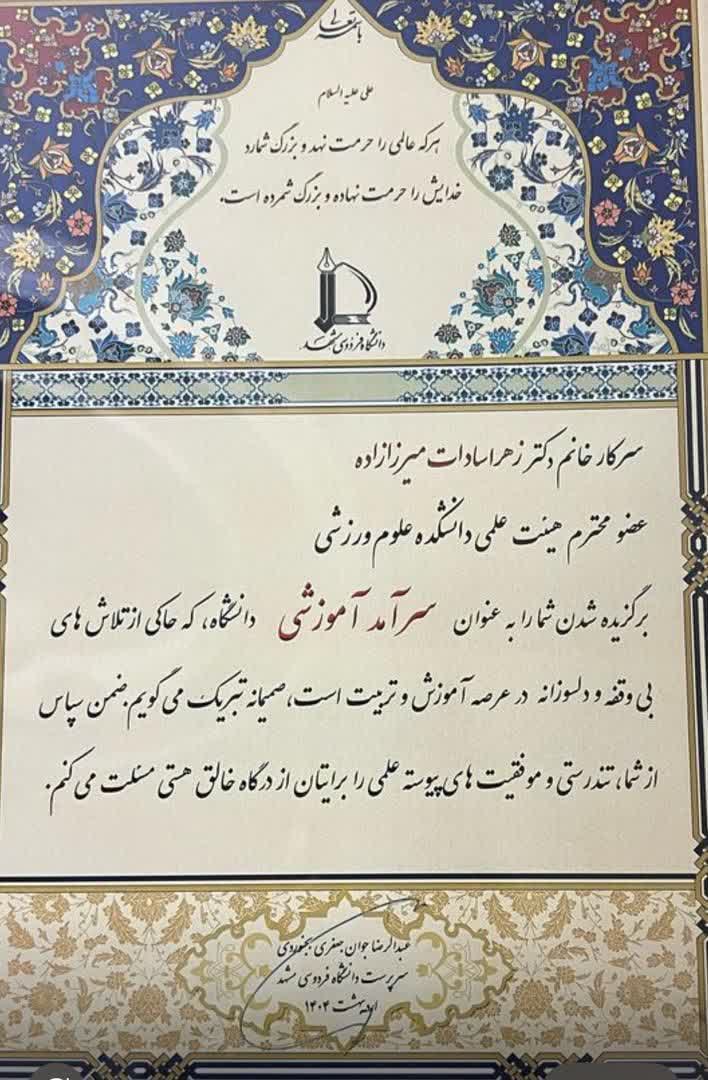 باسمه تعالی
علی علیه السلام
هرکه عالمی را حرمت نهد و بزرگ شمارد
خدایش را حرمت نهاده و بزرگ شمرده است.
دانشگاه فردوسی مشهد
سرکار خانم دکتر زهرا سادات میرزازاده
عضو محترم هیئت علمی دانشکده علوم ورزشی
برگزیده شدن شما را به عنوان سرآمد آموزشی دانشگاه، که حاکی از تلاش های
بی وقفه و دلسوزانه در عرصه آموزش و تربیت است، صمیمانه تبریک می گویم. ضمن سپاس
از شما، تندرستی و موفقیت های پیوسته علمی را برایتان از درگاه خالق هستی مسئلت می کنم.
عبدالرضا جوان جعفری بجنوردی
سرپرست دانشگاه فردوسی مشهد
اردیبهشت ۱۴۰۴